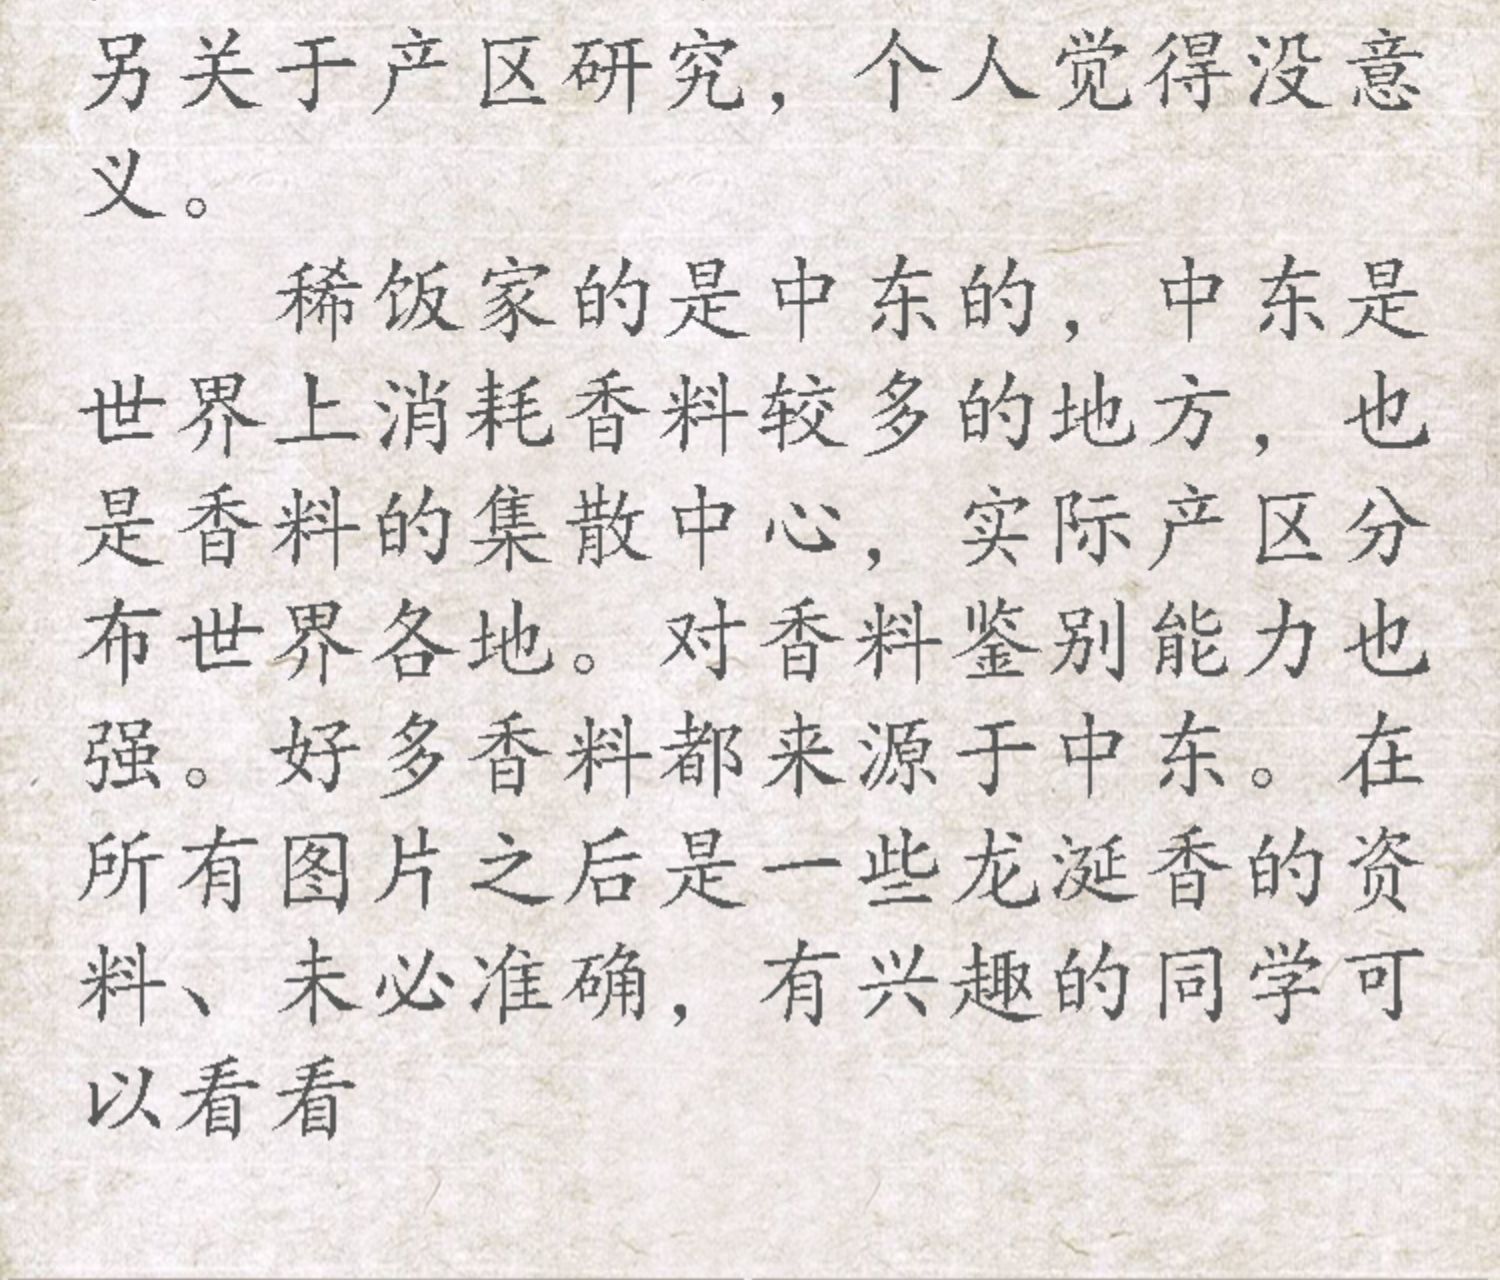 另关于产区研究，个人觉得没意
义。
稀饭家的是中东的，中东是
世界上消耗香料较多的地方，也
是香料的集散中心，实际产区分
布世界各地。对香料鉴别能力也
强。好多香料都来源于中东。在
所有图片之后是一些龙涎香的资
料、未必准确，有兴趣的同学可
以看看